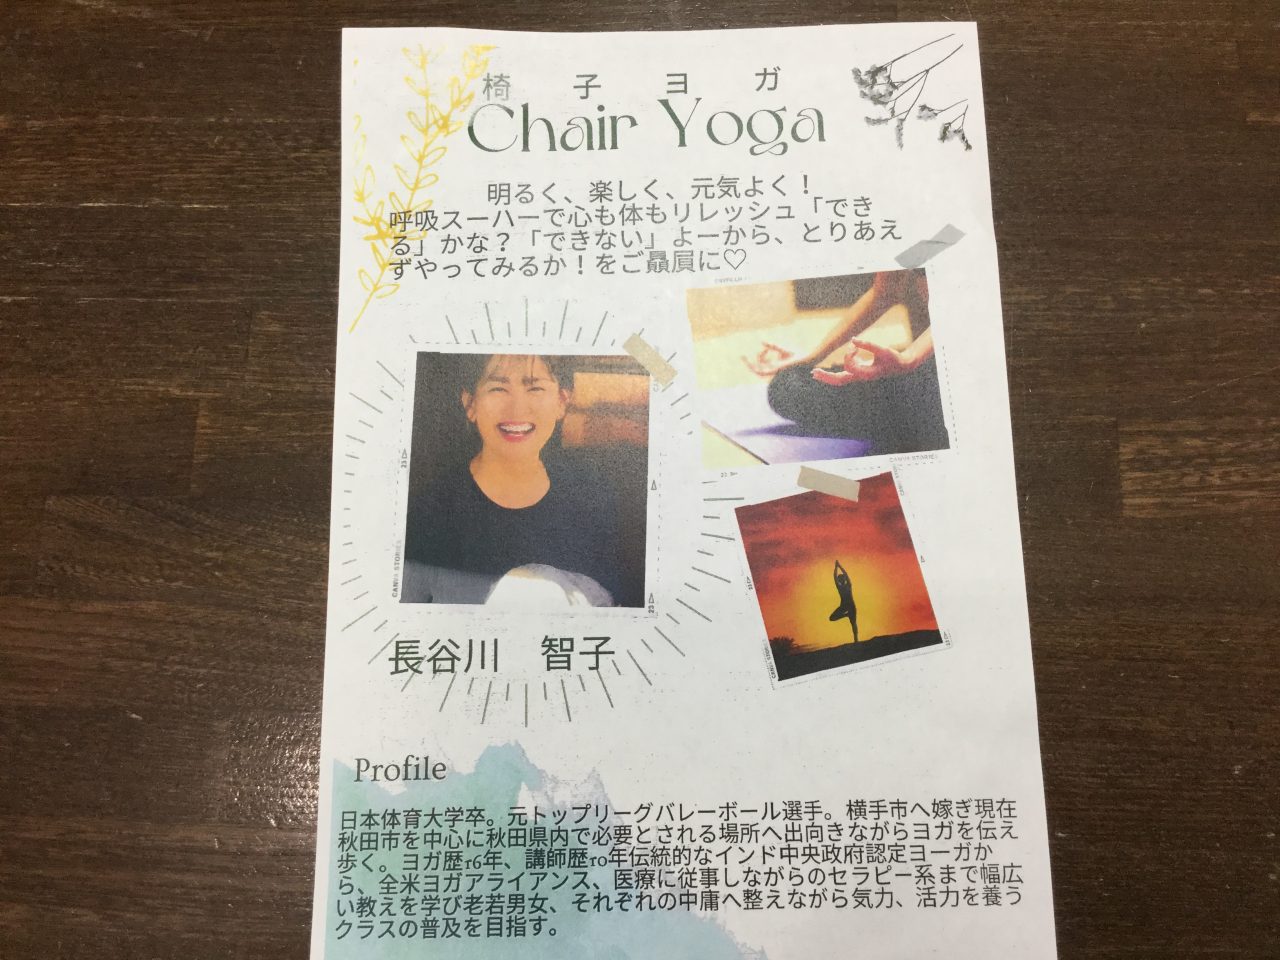 椅子ヨガ
Chair Yoga
明るく、楽しく、元気よく！
呼吸スーハーで心も体もリレッシュ「でき
る」かな？「できない」よーから、とりあえ
ずやってみるか！をご贔屓に♡
CANVA STORIES
23
CANVA STORIES
23
長谷川 智子
Profile
日本体育大学卒。元トップリーグバレーボール選手。横手市へ嫁ぎ現在
秋田市を中心に秋田県内で必要とされる場所へ出向きながらヨガを伝え
歩く。ヨガ歴16年、講師歴10年伝統的なインド中央政府認定ヨーガか
ら、全米ヨガアライアンス、医療に従事しながらのセラピー系まで幅広
い教えを学び老若男女、それぞれの中庸へ整えながら気力、活力を養う
クラスの普及を目指す。